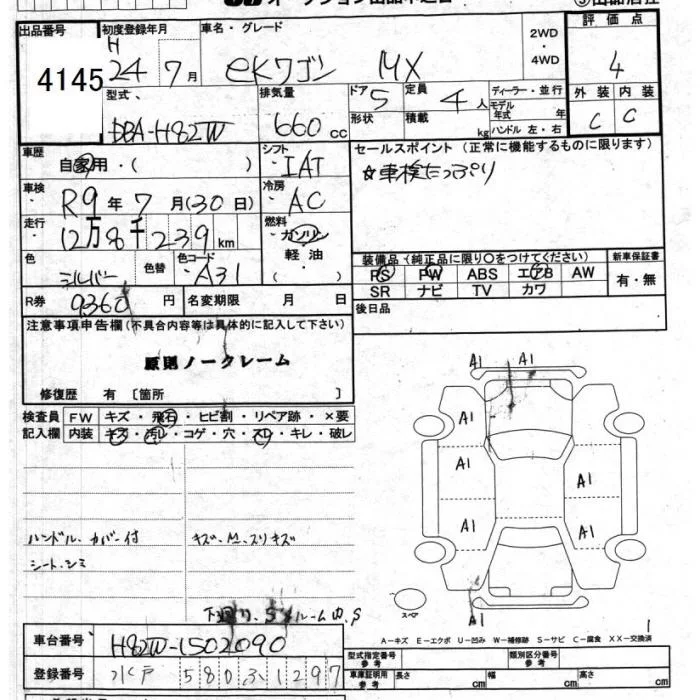 出品番号 初度登録年月 車名・グレード 2WD ・ 4WD 評価点
4145 H 24年 7月 eKワゴン MX 4
型式 排気量 ドア 5 定員 4人 ディーラー・並行 外装 内装
DBA-H82W 660cc 形状 積載 kg モデル年式 年 C C
ハンドル 左・右
車歴 自家用・( ) シフト IAT セールスポイント (正常に機能するものに限ります)
車検 R9年 7月(30日) 冷房 AC ☆車検たっぷり
走行 12万8千239km 燃料 ガソリン
軽油
色 シルバー 色替 色コード A31 ・( )
装備品(純正品に限り○をつけてください) 新車保証書
PS PW ABS エアB AW 有・無
SR ナビ TV カワ
R券 9360円 名変期限 月 日 後日品
注意事項申告欄(不具合内容等は具体的に記入して下さい)
原則ノークレーム
修復歴 有 [箇所 ]
検査員 FW キズ・飛石・ヒビ割・リペア跡・×要
記入欄 内装 キズ・汚レ・コゲ・穴・スレ・キレ・破レ
A1 A1
A1
A1 A1
A1 A1
ハンドル、カバー付 キズ、M、スリキズ
シート、シミ
下廻り、S ルーム内、S
スペア 1
A-キズ E-エクボ U-凹み W-補修跡 S-サビ C-腐食 XX-交換済
車台番号 H82W-1502090
型式指定番号 参考 類別区分番号 参考
登録番号 水戸 580 ふ 1297
車庫証明用 参考 長さ cm 幅 cm 高さ cm